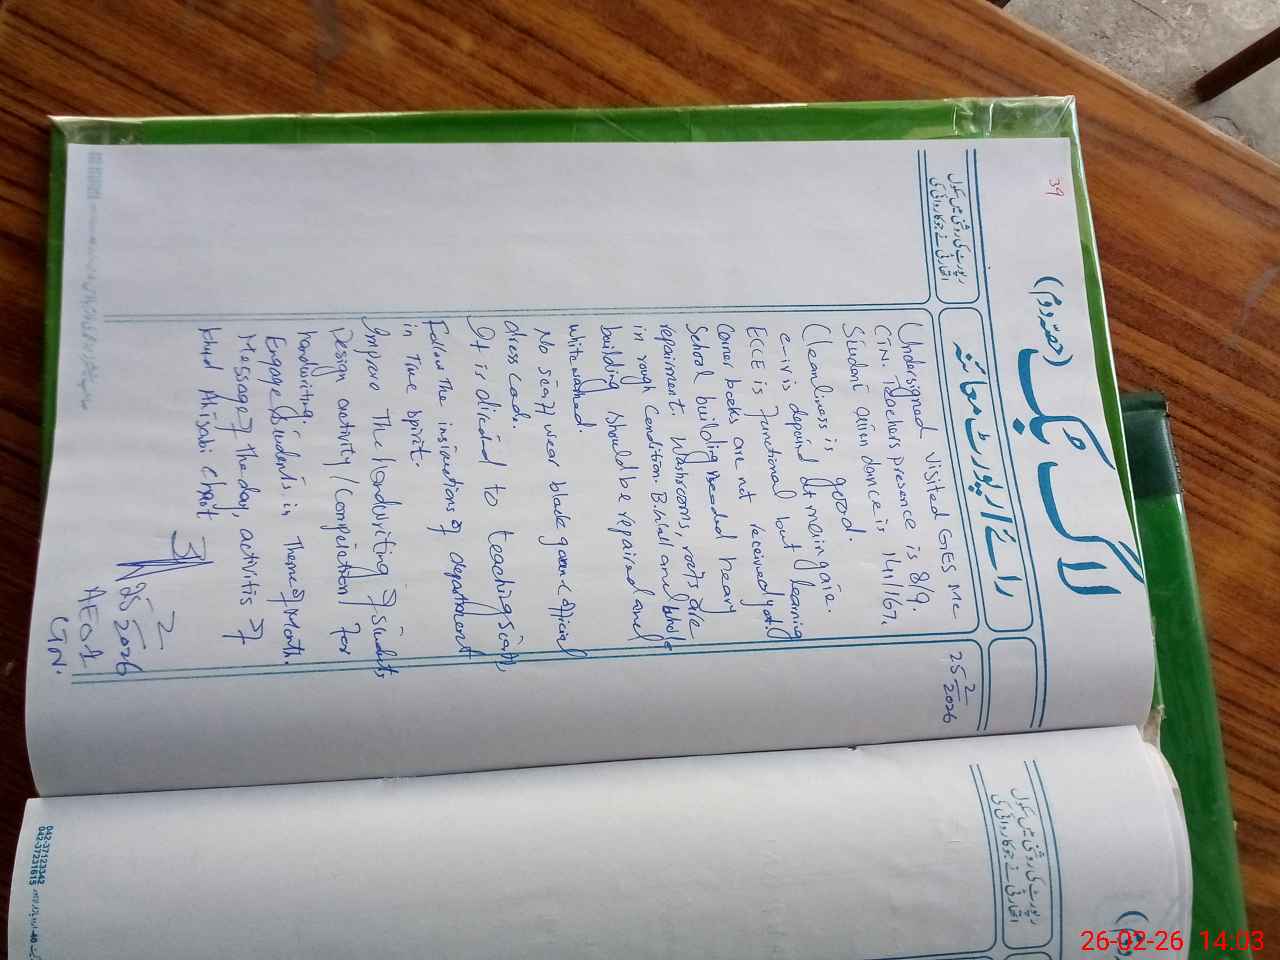 39
لاگ بک (حصہ دوم)
رائے / رپورٹ معائنہ
رپورٹ کی روشنی میں سکول
اتھارٹی نے جو کاروائی کی
25 2/2026
Undersigned visited GES MC
GTN. Teachers presence is 8/9.
Student attendance is 141/167.
Cleanliness is good.
is depend at main gate.
ECCE is functional but learning
corner books are not received yet
School building needed heavy
repairment. Washrooms, roofs are
in rough condition. B.Wall and whole
building should be repaired and
white washed.
No staff wear black gown (official
dress code.
It is directed to teaching staff,
Follow the instructions of department
in True spirit.
Improve The Handwriting of students
Design activity / Competetion for
handwriting.
Engage students in Theme of Month.
Message of the day, activities of
Khud Ahtsabi Chart
25 2/2026
AEO
GTN.
رپورٹ کی روشنی میں سکول
اتھارٹی نے جو کاروائی کی
042-37123342
042-37231615
26-02-26 14:03